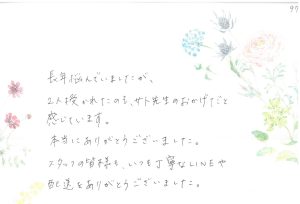 97
長年悩んでいましたが、
2人授かれたのも、サト先生のおかげだと
感じています。
本当にありがとうございました。
スタッフの皆様も、いつも丁寧なLINEや
配送をありがとうございました。